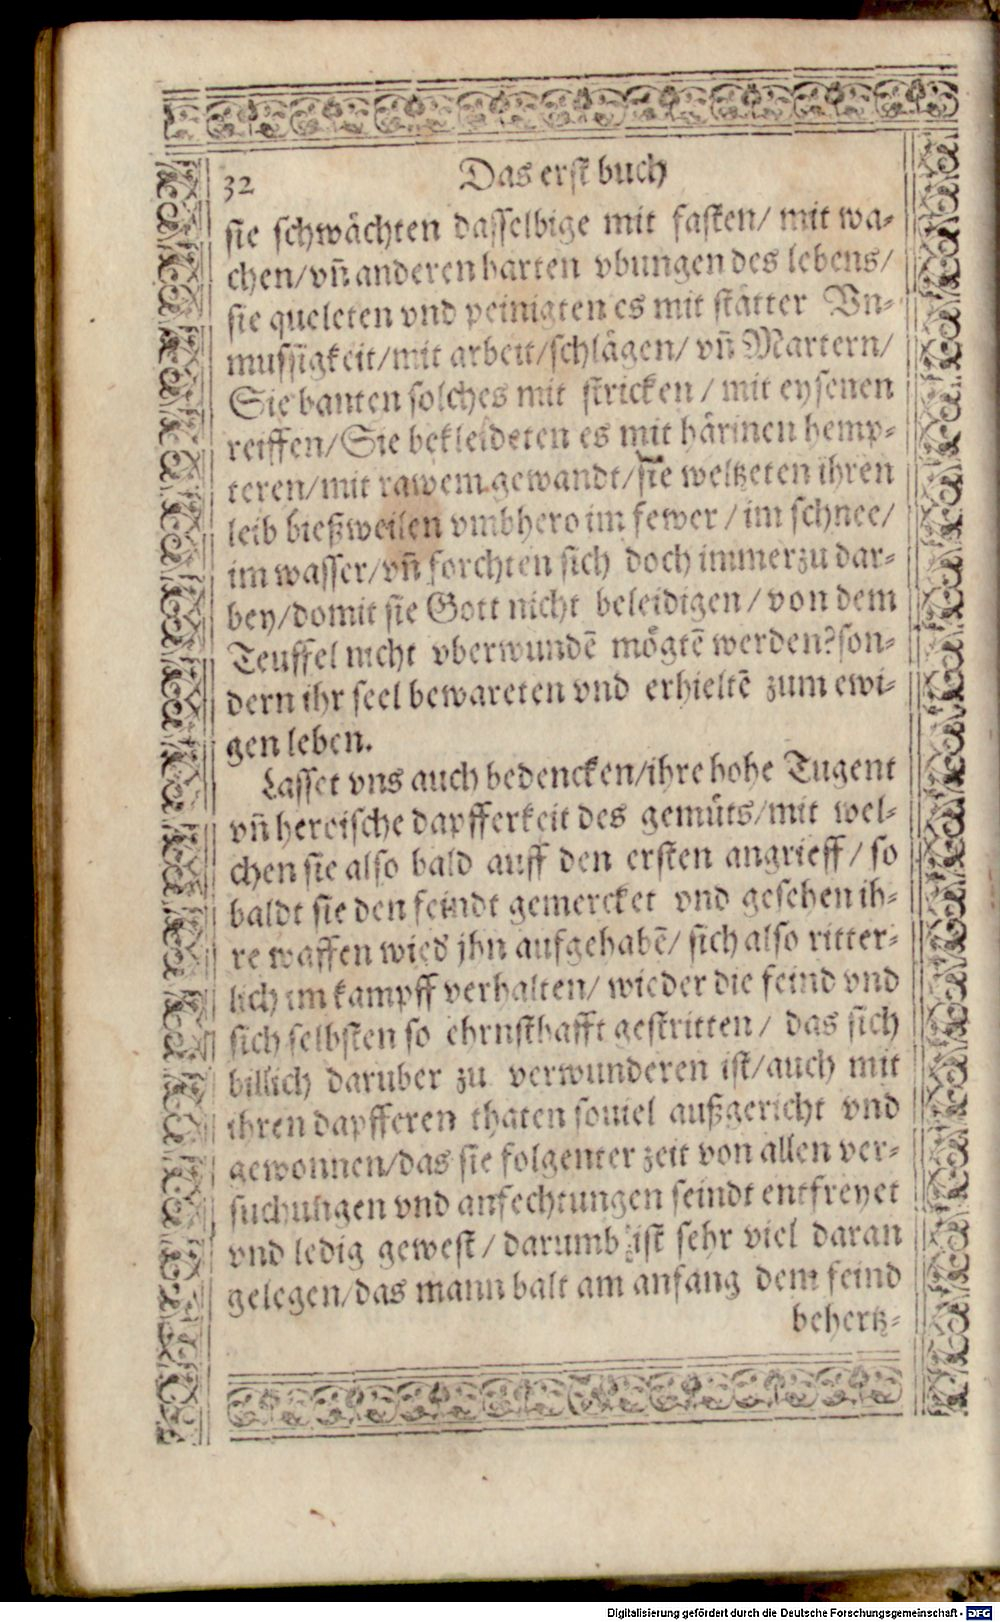 32 Das erst buch
sie schwächten dasselbige mit fasten/ mit wa-
chen/ vñ anderen harten vbungen des lebens/
sie queleten vnd peinigten es mit stätter Vn-
mussigkeit/ mit arbeit/ schlägen/ vñ Martern/
Sie banten solches mit stricken / mit eysenen
reiffen/ Sie bekleideten es mit härinen hemp-
teren/ mit rawem gewandt/ sie weltzeten ihren
leib bießweilen vmbhero im fewer / im schnee/
im wasser/ vñ forchten sich doch immerzu dar-
bey/ domit sie Gott nicht beleidigen / von dem
Teuffel nicht vberwundē mögtē werden? son-
dern ihr seel bewareten vnd erhieltē zum ewi-
gen leben.
Lasset vns auch bedencken/ ihre hohe Tugent
vñ heroische dapfferkeit des gemüts/ mit wel-
chen sie also bald auff den ersten angrieff / so
baldt sie den feindt gemercket vnd gesehen ih-
re waffen wied jhn aufgehabē/ sich also ritter-
lich im kampff verhalten/ wieder die feind vnd
sich selbsten so ehrnsthafft gestritten / das sich
billich daruber zu verwunderen ist/ auch mit
ihren dapfferen thaten souiel außgericht vnd
gewonnen/ das sie folgenter zeit von allen ver-
suchungen vnd anfechtungen seindt entfreyet
vnd ledig gewest / darumb ist sehr viel daran
gelegen/ das mann balt am anfang dem feind
behertz-
Digitalisierung gefördert durch die Deutsche Forschungsgemeinschaft - DFG